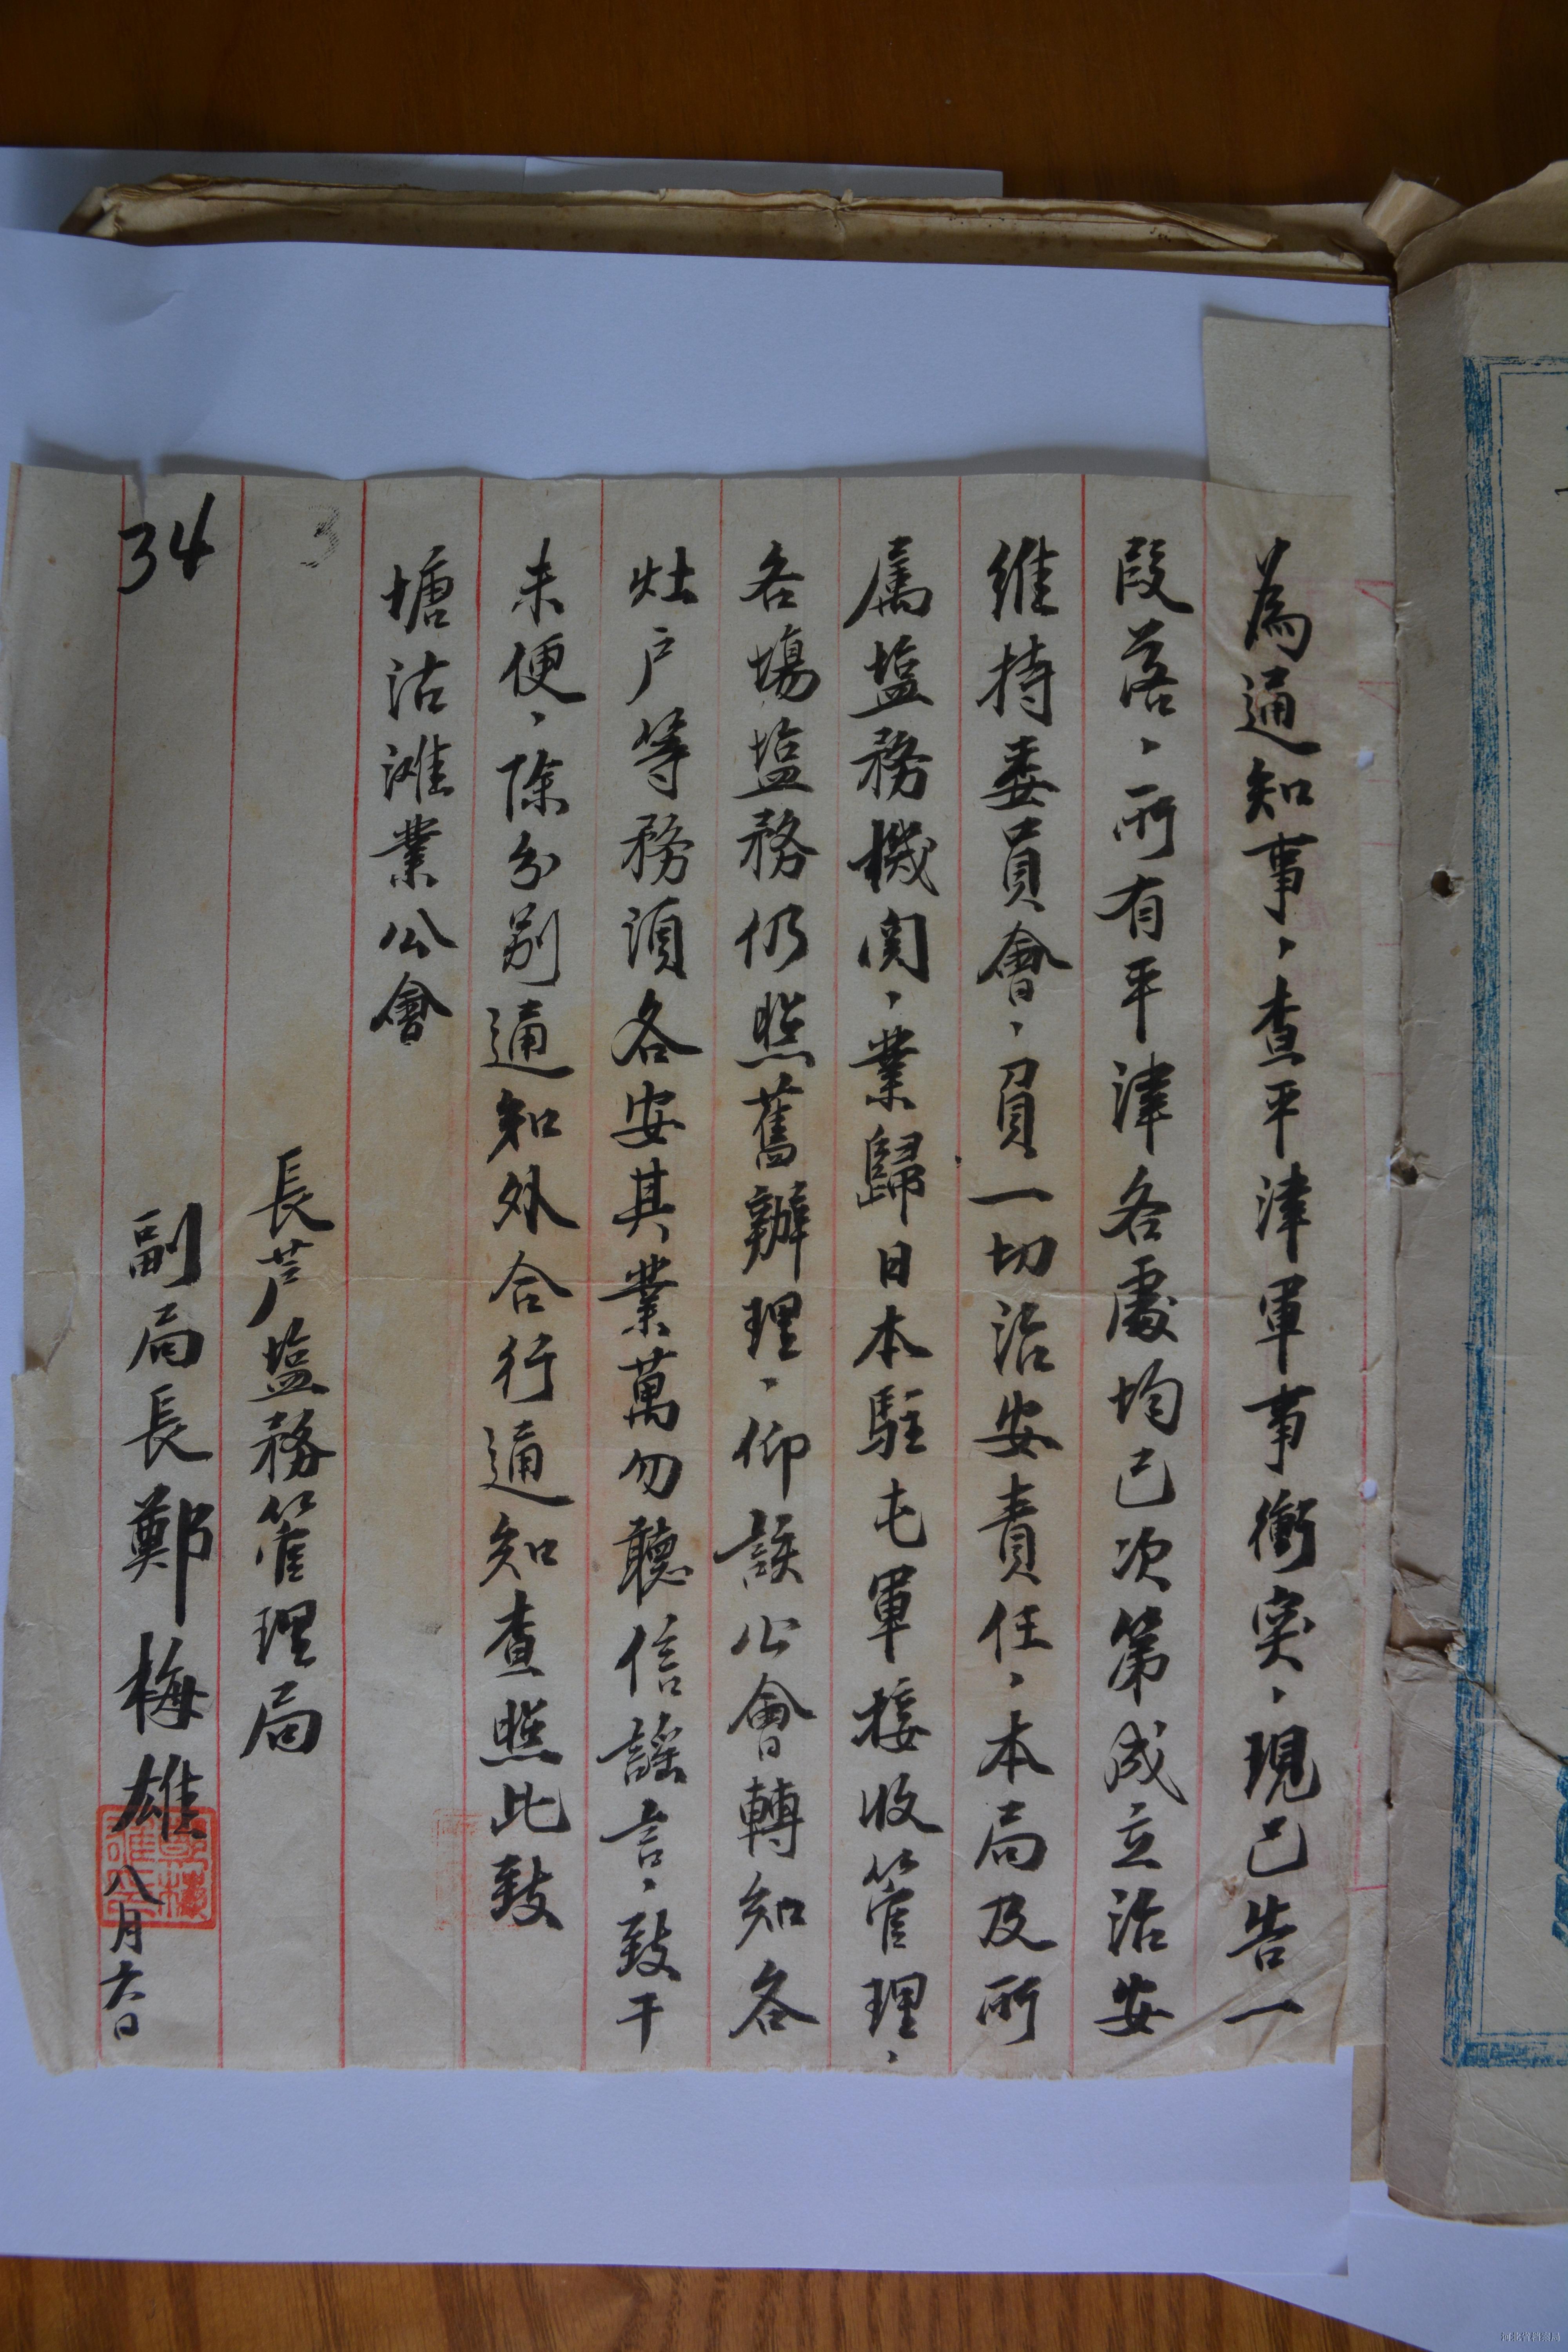 為通知事、查平津軍事衝突、現已告一
段落、所有平津各處均已次第成立治安
維持委員會、負一切治安責任、本局及所
属塩務機関、業歸日本駐屯軍接收管理、
各場塩務仍照舊辦理、仰該公會轉知各
灶戶等務須各安其業萬勿聽信謠言、致干
未便、除分别通知外合行通知查照此致
塘沽滩業公會
3
長芦塩務管理局
34
副局長鄭梅雄
八月六日